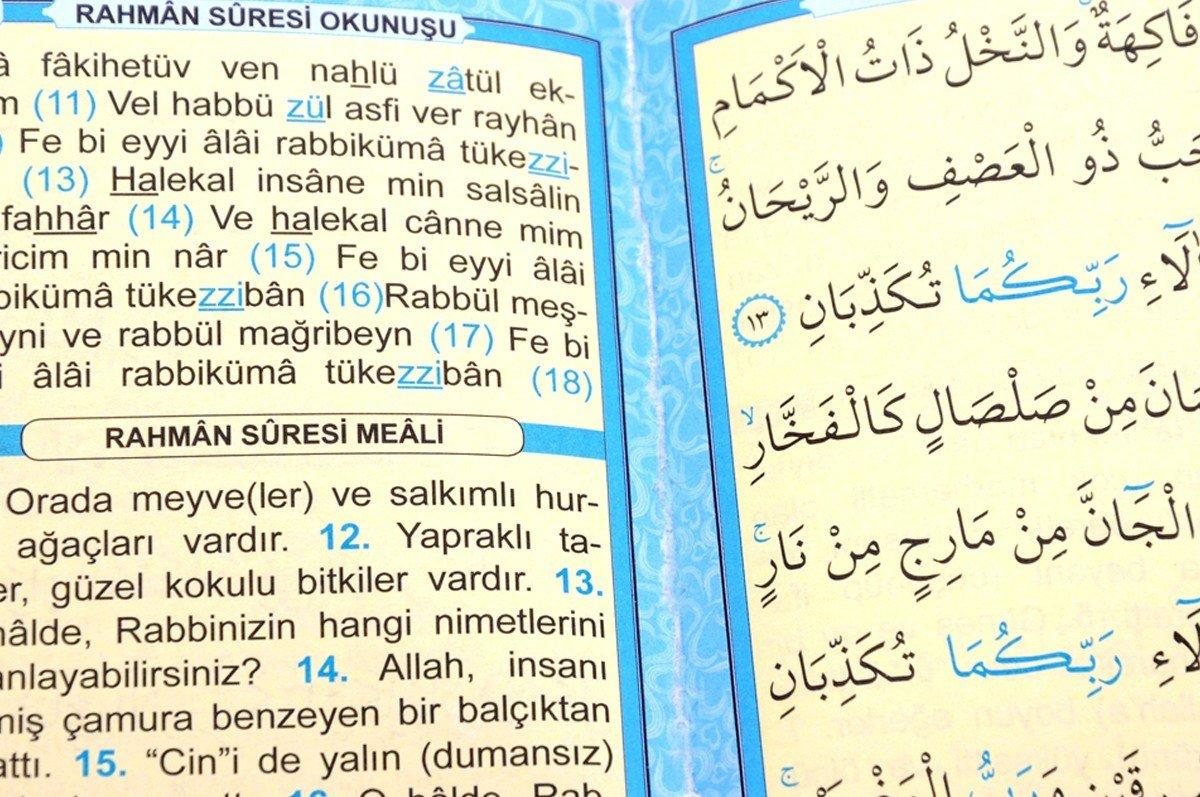 RAHMÂN SÛRESİ OKUNUŞU
fâkihetüv ven nahlü zâtül ek-
(11) Vel habbü zül asfi ver rayhân
Fe bi eyyi âlâi rabbikümâ tükezzi-
(13) Halekal insâne min salsâlin
fahhâr (14) Ve halekal cânne mim
min nâr (15) Fe bi eyyi âlâi
tükezzibân (16)Rabbül meş-
ve rabbül mağribeyn (17) Fe bi
âlâi rabbikümâ tükezzibân (18)
RAHMÂN SÛRESİ MEÂLİ
Orada meyve(ler) ve salkımlı hur-
ağaçları vardır. 12. Yapraklı ta-
güzel kokulu bitkiler vardır. 13.
Rabbinizin hangi nimetlerini
14. Allah, insanı
çamura benzeyen bir balçıktan
15. “Cin”i de yalın (dumansız)
فَاكِهَةٌ وَالنَّخْلُ ذَاتُ الْاَكْمَامِ
ذُو الْعَصْفِ وَالرَّيْحَانُۚ
رَبِّكُمَا تُكَذِّبَانِ ١٣
مِنْ صَلْصَالٍ كَالْفَخَّارِۙ
الْجَٓانَّ مِنْ مَارِجٍ مِنْ نَارٍۚ
رَبِّكُمَا تُكَذِّبَانِ